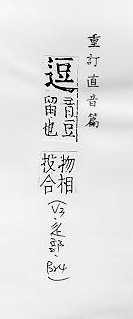 重訂直音篇
逗
音豆
留也
物相
投合
(V3.辵部.